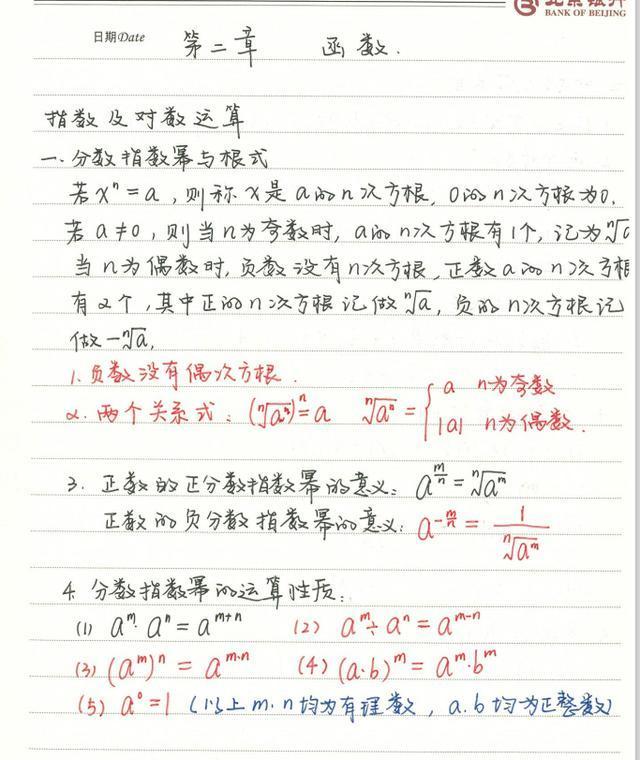 北京银行
BANK OF BEIJING
日期Date
第二章 函数.
指数及对数运算
一.分数指数幂与根式
若xⁿ=a,则称x是a的n次方根,0的n次方根为0.
若a≠0,则当n为奇数时,a的n次方根有1个,记为ⁿ√a
当n为偶数时,负数没有n次方根,正数a的n次方根
有2个,其中正的n次方根记做ⁿ√a,负的n次方根记
做-ⁿ√a,
1.负数没有偶次方根.
2.两个关系式:(ⁿ√aⁿ)ⁿ=a ⁿ√aⁿ={a n为奇数
|a| n为偶数.
3.正数的正分数指数幂的意义:a^(m/n)=ⁿ√a^m
正数的负分数指数幂的意义:a^(-m/n)=1/ⁿ√a^m
4.分数指数幂的运算性质:
(1) a^m·a^n=a^(m+n) (2) a^m÷a^n=a^(m-n)
(3) (a^m)^n=a^(m·n) (4) (a·b)^m=a^m·b^m
(5) a^0=1 (以上m.n均为有理数,a.b均为正整数)